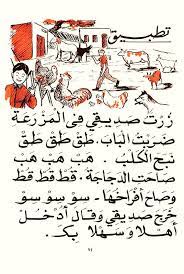 تطبيق
زُرْتُ صَدِيقِي فِي المَزْرَعَةِ
ضَرَبْتُ البَابَ. طَقْ طَقْ طَقْ
نَبَحَ الكَلْبُ. هَبْ هَبْ هَبْ
صَاحَتِ الدَّجَاجَةُ. قَطْ قَطْ قَطْ
وَصَاحَ أَفْرَاخُهَا. سِوْ سِوْ سِوْ
خَرَجَ صَدِيقِي وَقَالَ أُدْخُلْ
أَهْلاً وَسَهْلاً بِكَ.